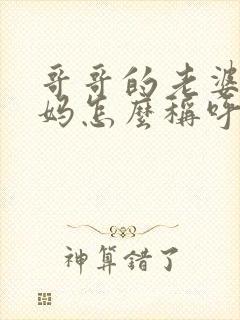 哥哥的老婆
妈怎麼稱呼
神算錯了